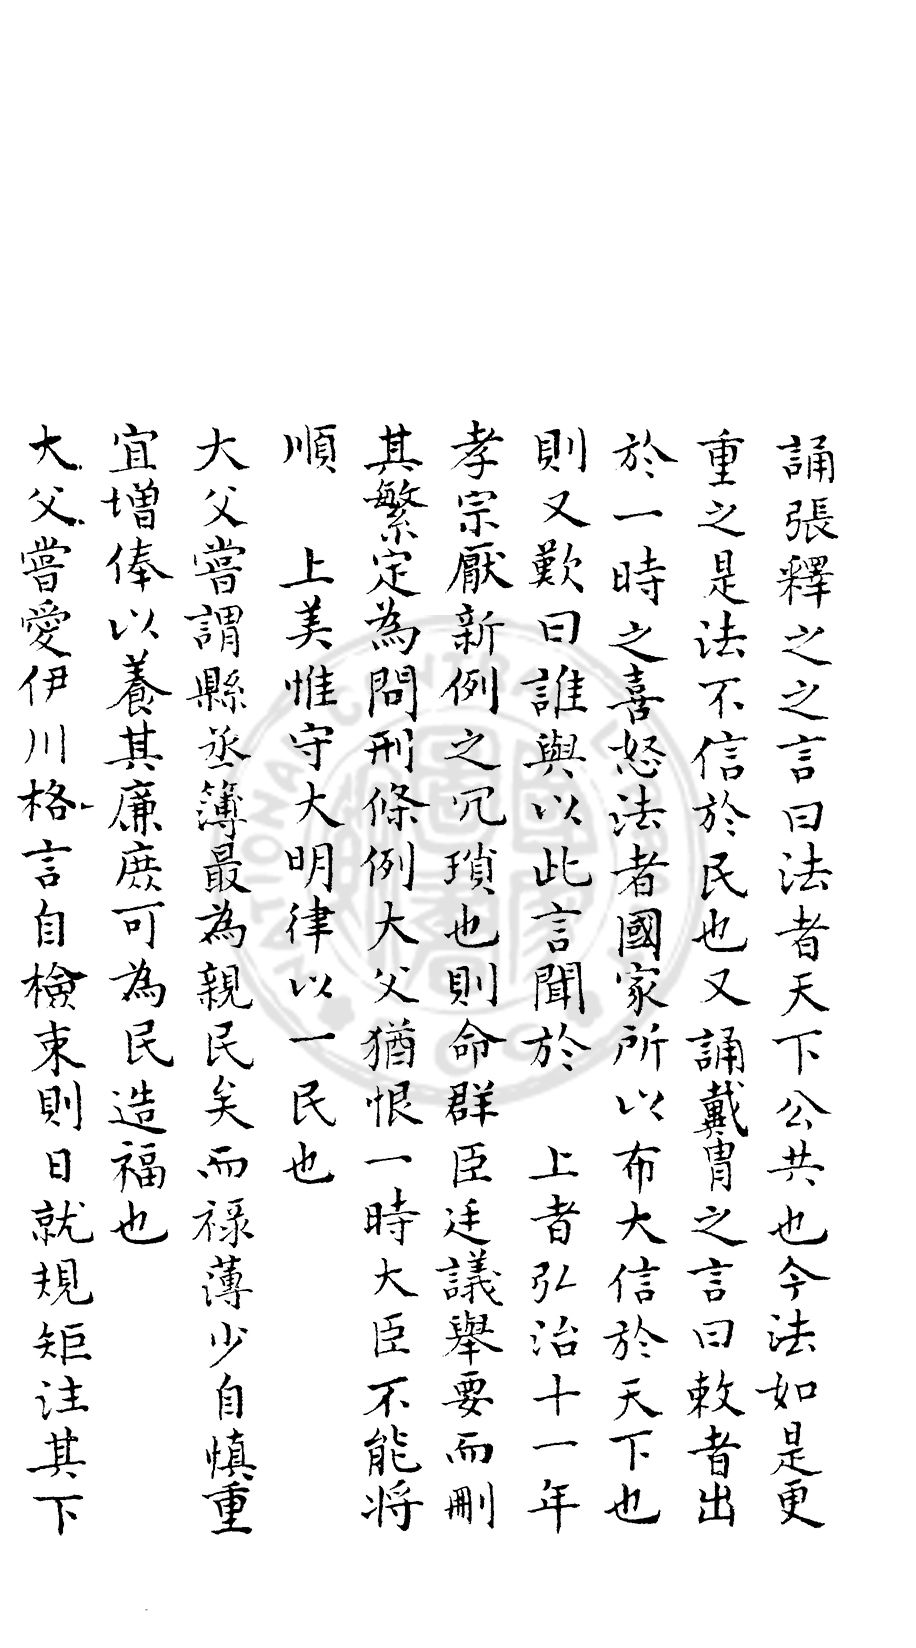 誦張釋之之言曰法者天下公共也今法如是更
重之是法不信於民也又誦戴胄之言曰敕者出
於一時之喜怒法者國家所以布大信於天下也
則又歎曰誰與以此言聞於　上者弘治十一年
孝宗厭新例之冗瑣也則命群臣廷議舉要而刪
其繁定為問刑條例大父猶恨一時大臣不能將
順　上美惟守大明律以一民也
大父嘗謂縣丞簿最為親民矣而祿薄少自慎重
宜增俸以養其廉庶可為民造福也
大父嘗愛伊川格言自檢束則日就規矩注其下